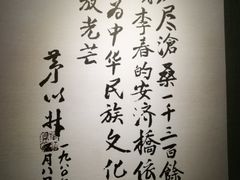 尽滄桑一千三百餘
李春的安济橋依
为中华民族文化
放光芒
茅以升
一九八〇
月八日